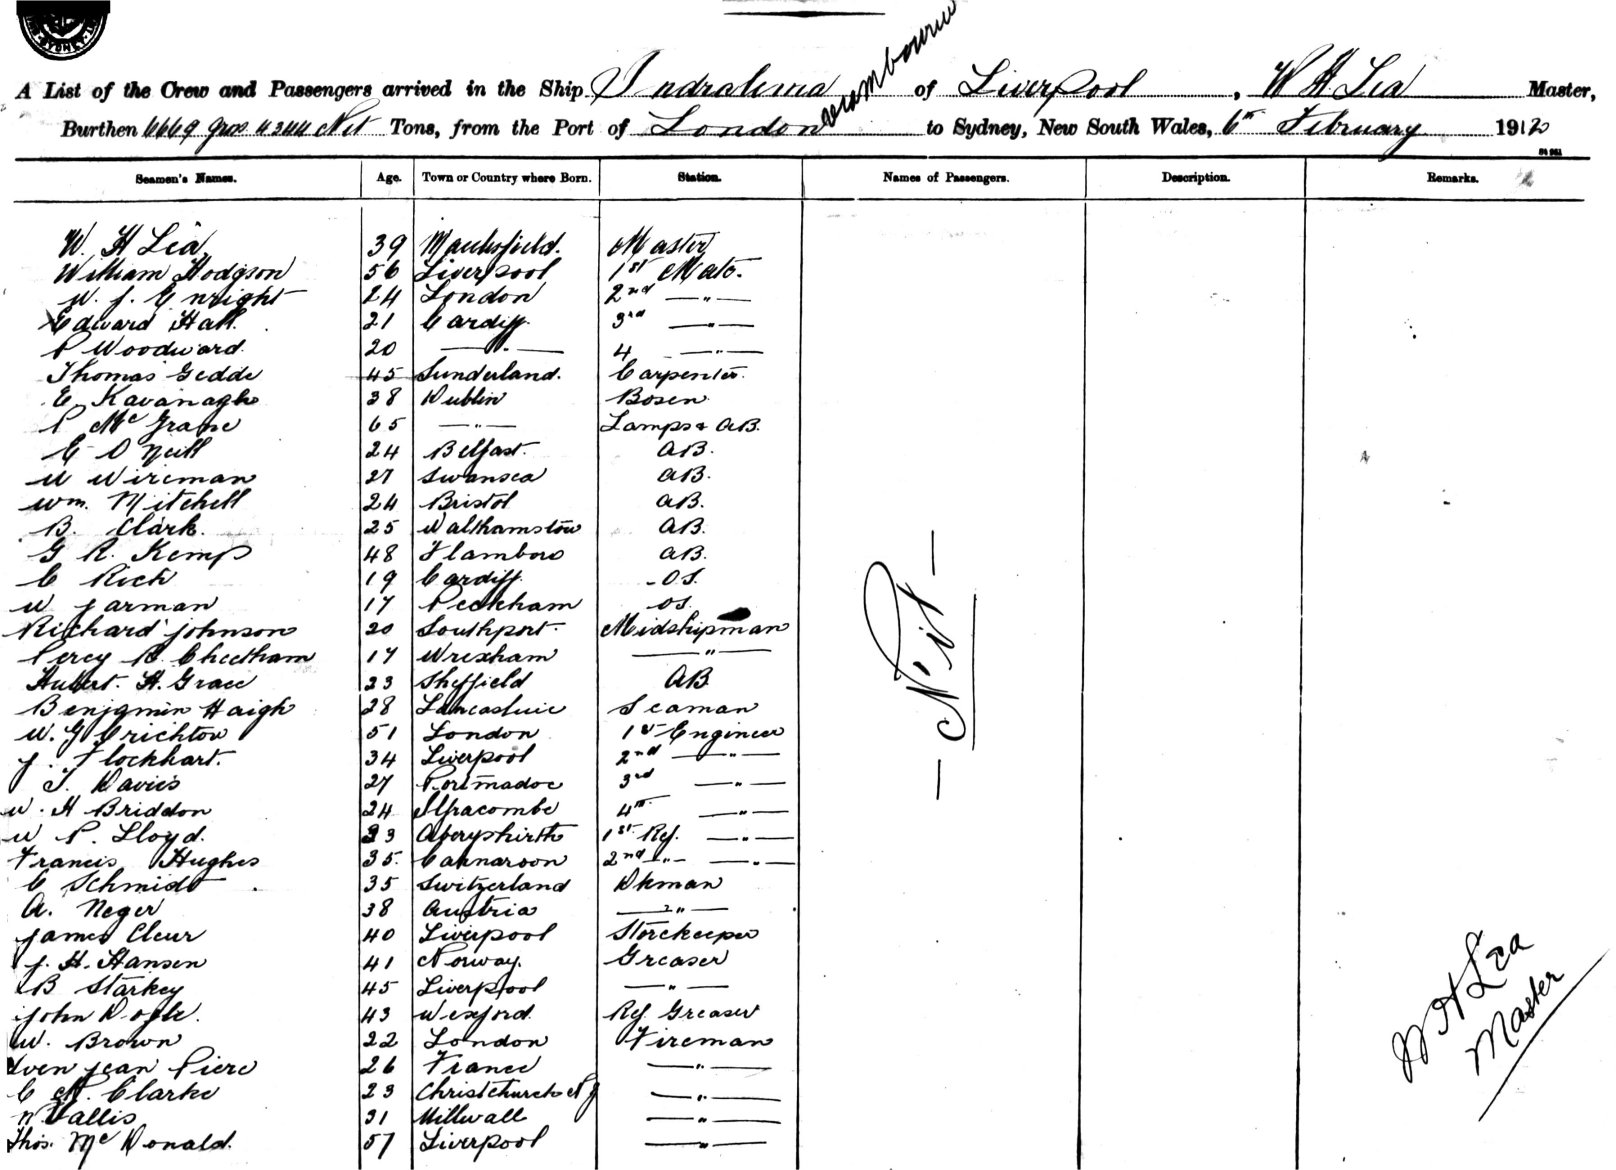 SYDNEY
A List of the Crew and Passengers arrived in the Ship Indralema of Liverpool, W H Lea Master,
via Melbourne
Burthen 6669 Gross 4244 Net Tons, from the Port of London to Sydney, New South Wales, 6th February 1912
Seamen's Names. Age. Town or Country where Born. Station. Names of Passengers. Description. Remarks.
W. H Lea 39 Macclesfield. Master
William Hodgson 56 Liverpool 1st Mate.
W. J. Enright 24 London 2nd — " —
Edward Hall. 21 Cardiff. 3rd — " —
P Woodward. 20 — " — 4 — " —
Thomas Gedde 45 Sunderland. Carpenter.
E Kavanagh 38 Dublin Bosen
P Mc Grane 65 — " — Lamps & AB.
E O Neill 24 Belfast. AB.
W Wireman 27 Swansea AB.
Wm. Mitchell 24 Bristol AB.
B. Clark. 25 Walthamstow AB.
G R. Kemp 48 Flamboro AB.
C Rich 19 Cardiff. OS.
W Jarman 17 Peckham OS.
Richard Johnson 20 Southport. Midshipman
Percy R. Cheetham 17 Wrexham — " —
Hubert. H. Grace 23 Sheffield AB
Benjamin Haigh 28 Lancashire Seaman
W. G Crichton 51 London 1st Engineer
J. Flockhart. 34 Liverpool 2nd — " —
T. Davies 27 Portmadoc 3rd — " —
W. H Briddon 24 Ilfracombe 4th — " —
W P. Lloyd. 23 1st Ref. — " —
Francis Hughes 35 Carnarvon 2nd " — " —
C Schmidt 35 Switzerland Dkman
A. Neger 38 Austria — " —
James Cleur 40 Liverpool Storekeeper
J. H. Hansen 41 Norway. Greaser
B Starkey 45 Liverpool — " —
John Doyle. 43 Wexford. Ref Greaser
W. Brown 22 London Fireman
Yven Jean Piere 26 France — " —
C M. Clarke 23 Christchurch N Z — " —
N. Vallis 31 Millwall — " —
Thos. Mc Donald. 57 Liverpool — " —
— Nil —
W H Lea
Master